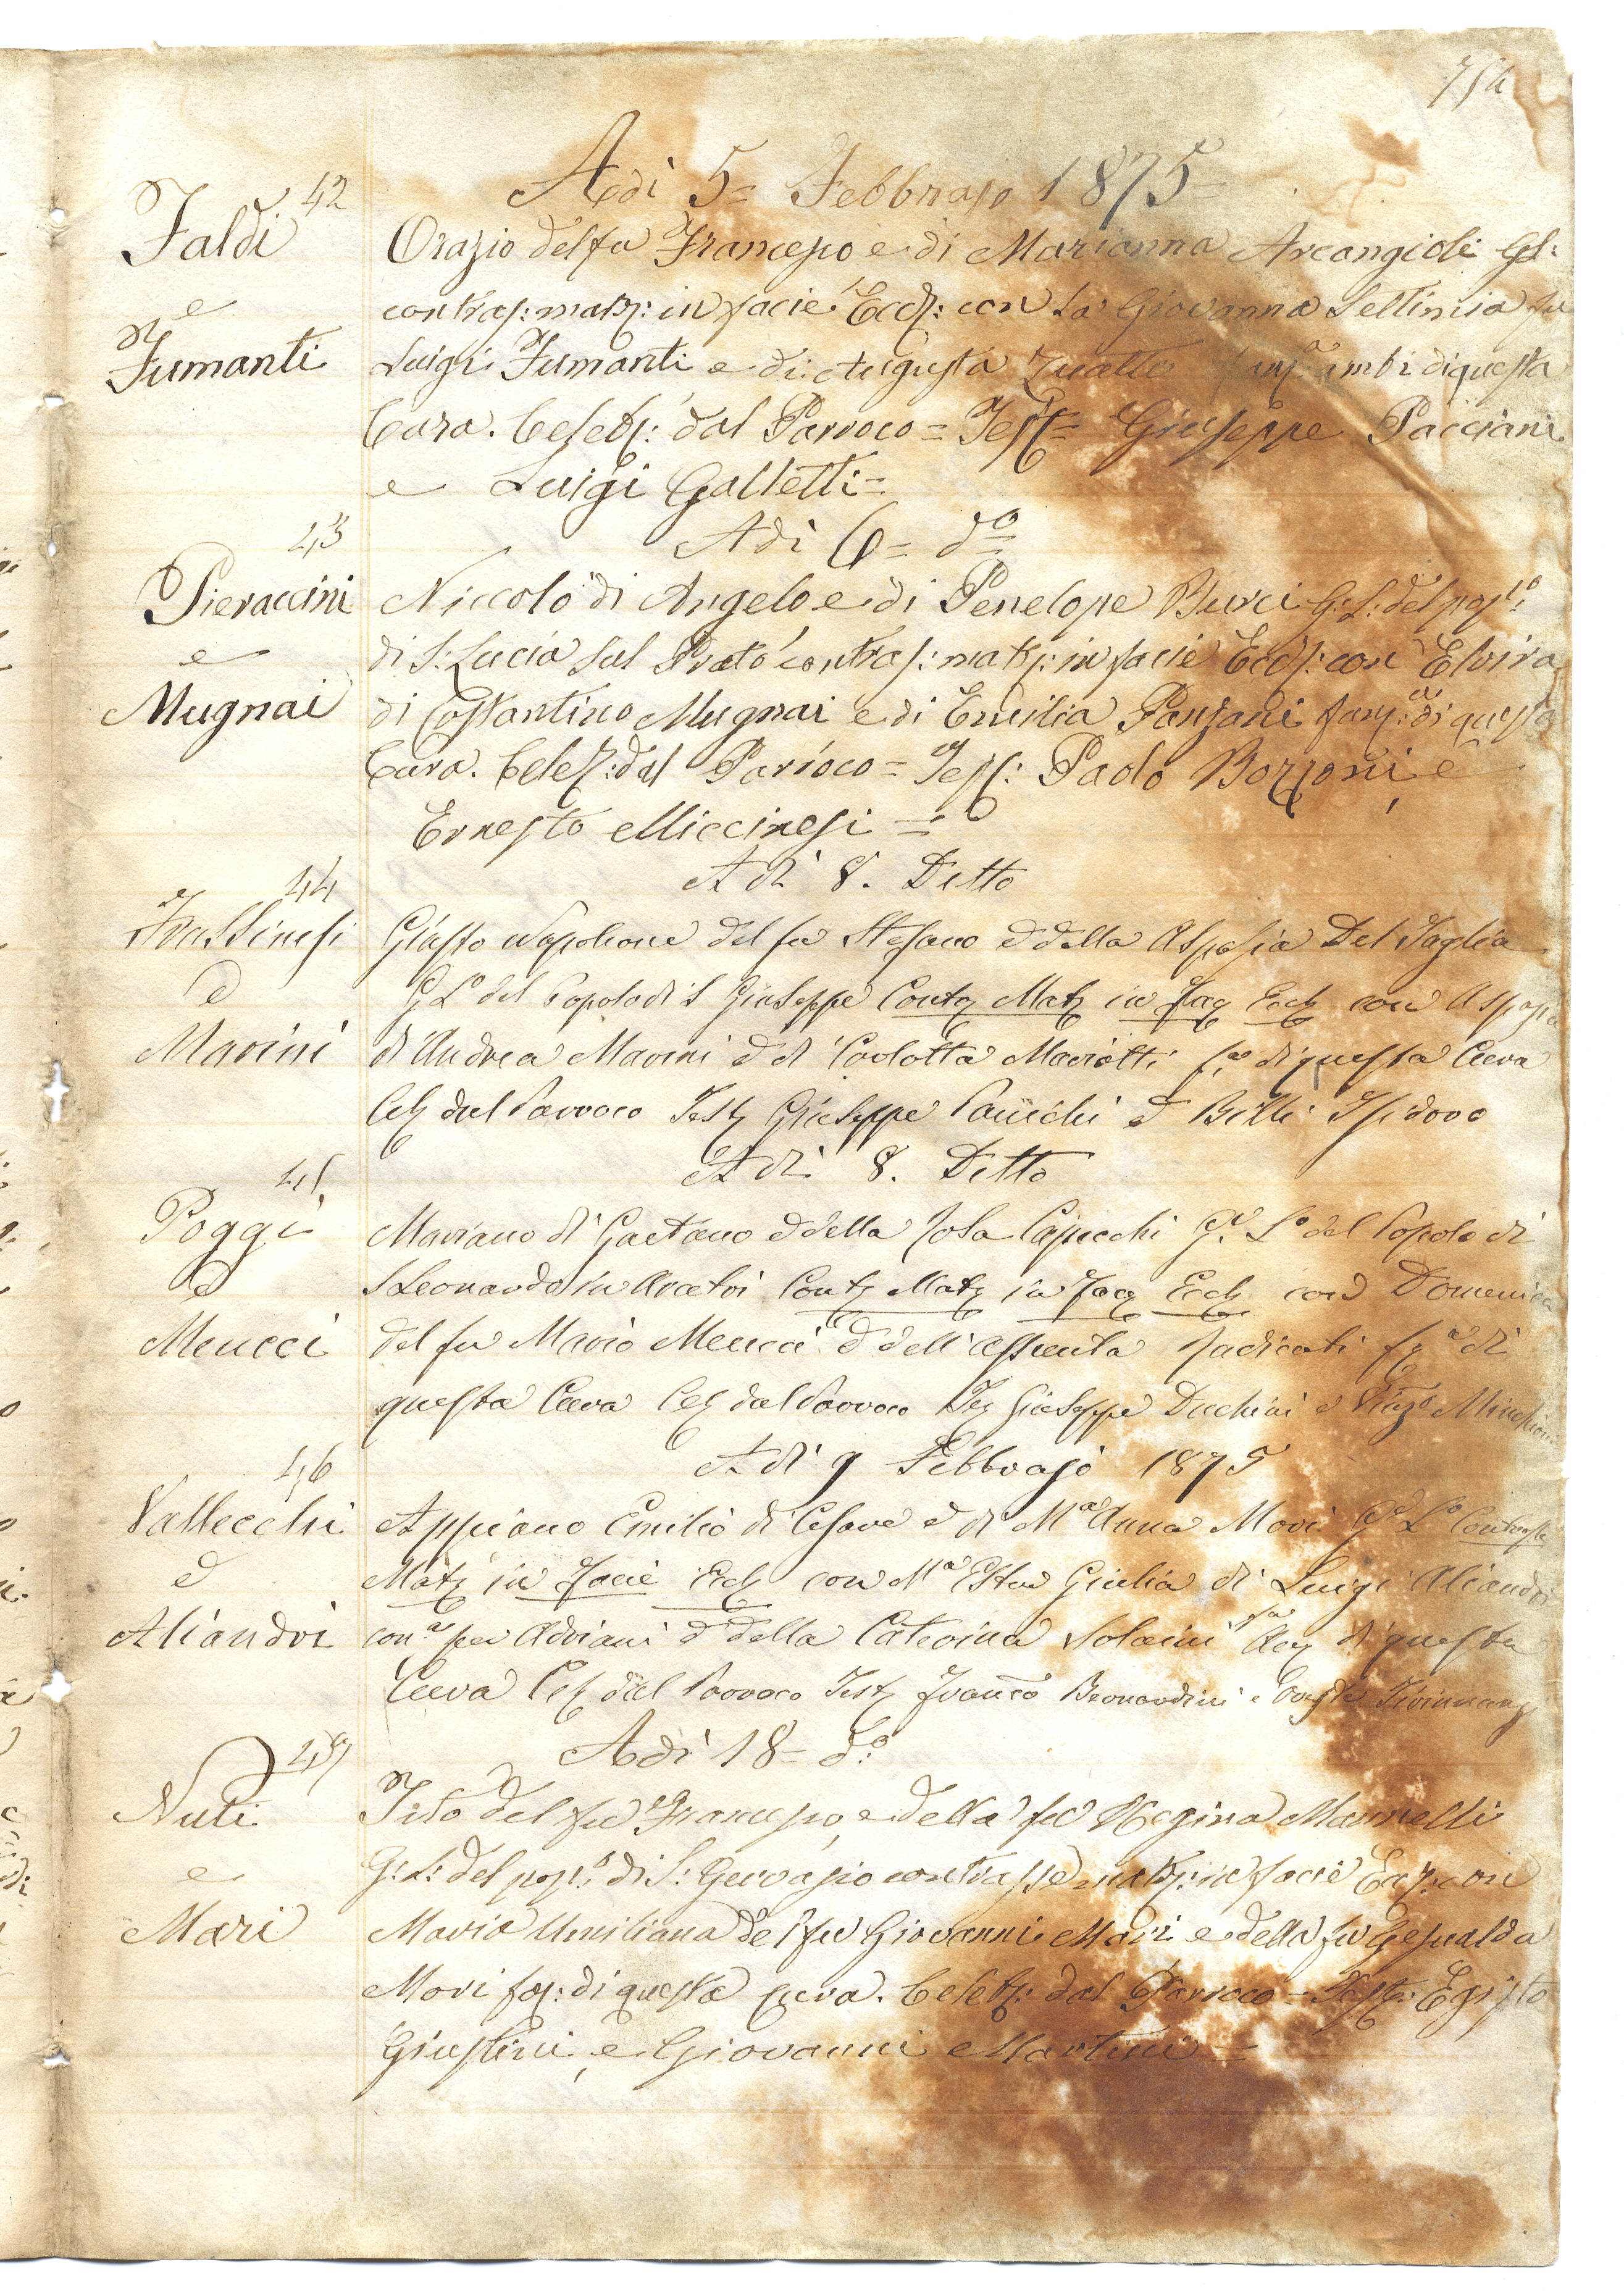 Adì 5= Febbrajo 1875
42
Faldi
e
Fumanti
Orazio del fu Francesco e di Marianna Arcangioli G.L:
contras: matr: in facie Eccl: con la Giovanna Settimia fu
Luigi Fumanti e di Augusta ambi di questa
Cura. Celebr: dal Parroco = Test= Giuseppe Pacciani
e Luigi Galletti=
Adì 6= do
43
Pieraccini
e
Mugnai
Niccolò di Angelo, e di Penelope Burci G: L: del poplo:
di S: Lucia sul Prato contras: matr: in facie Eccl: con Elvira
di Costantino Mugnai e di Emilia Panzani fanz: di questa
Cura. Celeb: dal Parroco= Test: Paolo Bozzoni, e
Ernesto Miccinesi =
Adì 8. Detto
44
Frassinesi
e
Marini
Giusto Napoleone del fu Stefano e della Aspasia Del Taglia
G Lo del Popolo di S Giuseppe Contr Matr in Fac Eccl con Aspasia
di Andrea Marini e di Carlotta Mariotti fa di questa Cura
Cel dal Parroco Test Giuseppe e Billi Isidoro
Adì 8. Detto
45
Poggi
e
Meucci
Mariano di Gaetano e della Rosa Capecchi Ge Lo del Popolo di
S Leonardo in Arcetri Contr Matr in Fac Eccl con Domenica
del fu Mario Meucci e dell'Assunta Radicati fa di
questa Cura Cel dal Parroco Tes Giuseppe Duchini e Vinzo
Adì 9 Febbrajo 1875
46
Vallecchi
e
Aliandri
Appiano Emilio di Cesare e di Ma Anna Mori Ge Lo Contrasse
Matr in Facie Eccl con Ma Ester Giulia di Luigi Aliandri
cona per Adriani e della Caterina Solaini fa di questa
Cura Cel dal Parroco Test Franco Bernardini e Oreste
Adì 18= do
47
Nuti
e
Mari
Tito del fu Francesco, e della fu Regina Mannelli
G: L: del popo: di S: Gervasio contrasse matr: in facie Eccl: con
Maria Umiliana del fu Giovanni Mari e della fu Gesualda
Mori fa: di questa Cura. Celebr: dal Parroco = Test: Egisto
Giustini, e Giovanni Martini =